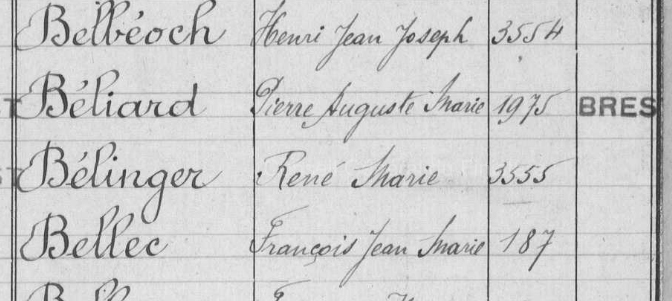 Belbéoch Henri Jean Joseph 3554
Béliard Pierre Auguste Marie 1975 BRES
Bélinger René Marie 3555
Bellec François Jean Marie 187